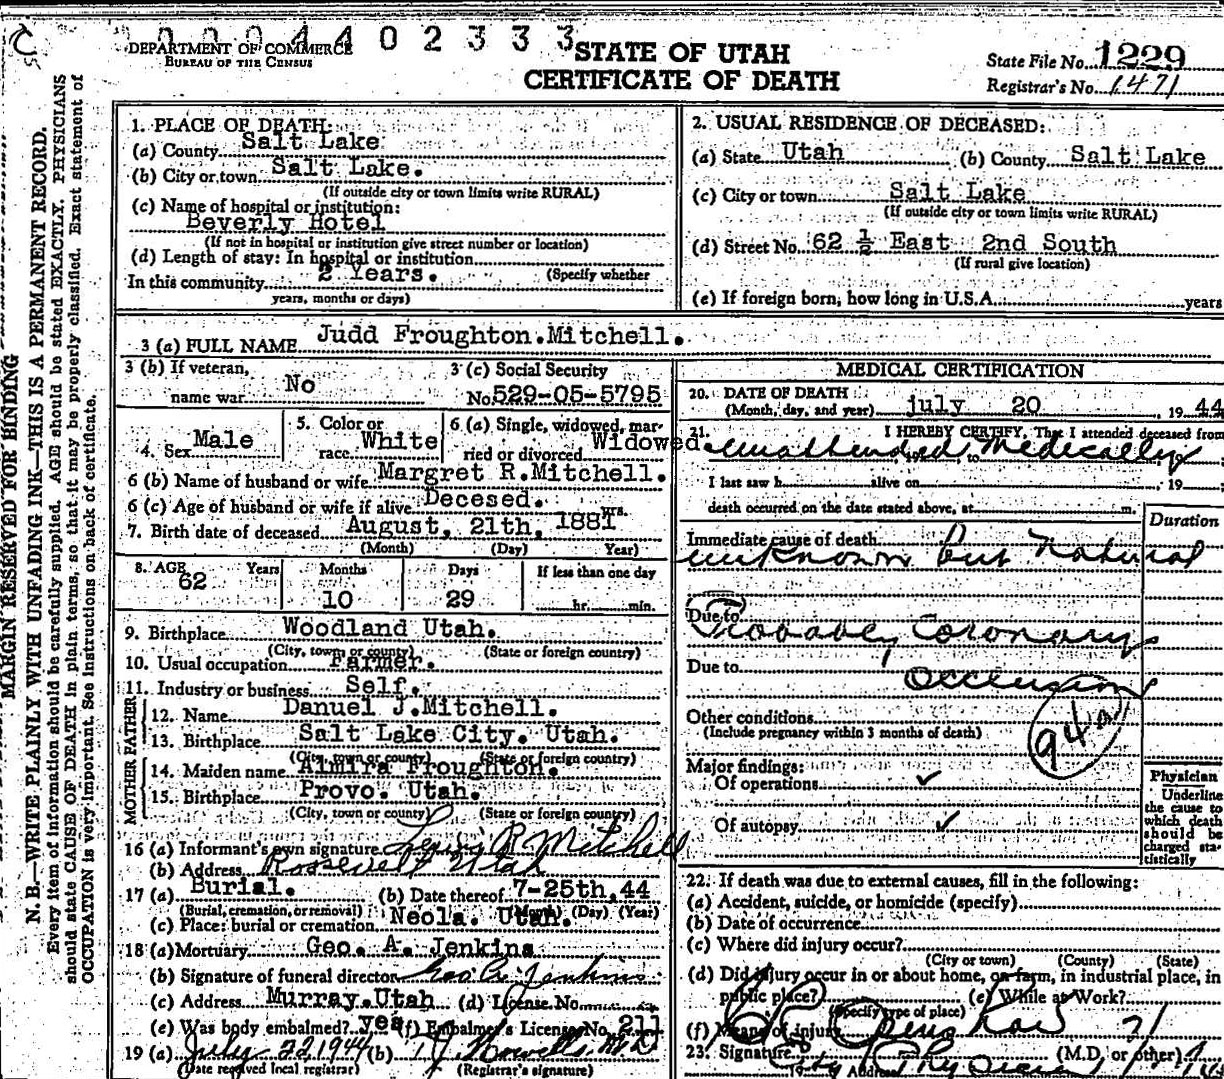 0004402333
DEPARTMENT OF COMMERCE
BUREAU OF THE CENSUS
STATE OF UTAH
CERTIFICATE OF DEATH
State File No. 1229
Registrar's No. 1471
MARGIN RESERVED FOR BINDING
N. B.—WRITE PLAINLY WITH UNFADING INK—THIS IS A PERMANENT RECORD.
Every item of information should be carefully supplied. AGE should be stated EXACTLY. PHYSICIANS
should state CAUSE OF DEATH in plain terms, so that it may be properly classified. Exact statement of
OCCUPATION is very important. See instructions on back of certificate.
1. PLACE OF DEATH:
(a) County Salt Lake
(b) City or town Salt Lake.
(If outside city or town limits write RURAL)
(c) Name of hospital or institution:
Beverly Hotel
(If not in hospital or institution give street number or location)
(d) Length of stay: In hospital or institution
In this community 2 Years. (Specify whether
years, months or days)
2. USUAL RESIDENCE OF DECEASED:
(a) State Utah (b) County Salt Lake
(c) City or town Salt Lake
(If outside city or town limits write RURAL)
(d) Street No. 62 ½ East 2nd South
(If rural give location)
(e) If foreign born, how long in U.S.A. years
3 (a) FULL NAME Judd Froughton.Mitchell.
3 (b) If veteran,
name war No
3 (c) Social Security
No. 529-05-5795
4. Sex Male
5. Color or
race White
6 (a) Single, widowed, mar-
ried or divorced Widowed
6 (b) Name of husband or wife Margret R.Mitchell.
6 (c) Age of husband or wife if alive Decesed. yrs.
7. Birth date of deceased August, 21th, 1881
(Month) (Day) Year)
8. AGE Years Months Days If less than one day
62 10 29 hr. min.
9. Birthplace Woodland Utah.
(City, town or county) (State or foreign country)
10. Usual occupation Farmer.
11. Industry or business Self.
FATHER
12. Name Danuel J.Mitchell.
13. Birthplace Salt Lake City. Utah.
(City, town or county) (State or foreign country)
MOTHER
14. Maiden name Almira Froughton.
15. Birthplace Provo. Utah.
(City, town or county) (State or foreign country)
16 (a) Informant's own signature R Mitchell
(b) Address Roosevelt Utah
17 (a) Burial. (b) Date thereof 7-25th,44
(Burial, cremation, or removal) (Month) (Day) (Year)
(c) Place: burial or cremation Neola. Utah.
18 (a) Mortuary Geo. A. Jenkins
(b) Signature of funeral director Geo A. Jenkins
(c) Address Murray.Utah (d) License No.
(e) Was body embalmed? yes (f) Embalmer's License No. 211
19 (a) July 22 1944 (b)
(Date received local registrar) (Registrar's signature)
MEDICAL CERTIFICATION
20. DATE OF DEATH
(Month, day, and year) july 20, 1944
21. I HEREBY CERTIFY, That I attended deceased from
unattended Medically
I last saw h alive on , 19 ;
death occurred on the date stated above, at m.
Duration
Immediate cause of death
unknown but natural
Due to Probabley Coronary
Due to Occlusion
94a
Other conditions
(Include pregnancy within 3 months of death)
Major findings:
Of operations ✓
Of autopsy ✓
Physician
Underline
the cause to
which death
should be
charged sta-
tistically
22. If death was due to external causes, fill in the following:
(a) Accident, suicide, or homicide (specify)
(b) Date of occurrence
(c) Where did injury occur?
(City or town) (County) (State)
(d) Did injury occur in or about home, on farm, in industrial place, in
public place? (e) While at Work?
(Specify type of place)
(f) Means of injury
23. Signature (M.D. or other)
Address City Physician